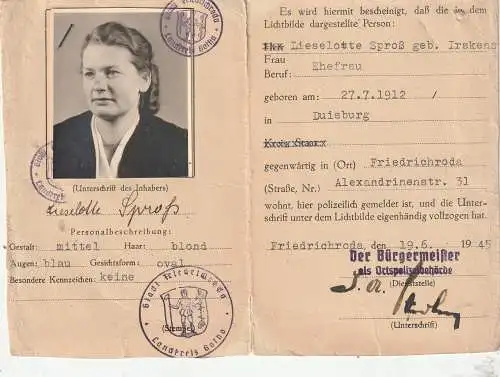 Stadt Friedrichroda
Landkreis Gotha
(Unterschrift des Inhabers)
Lieselotte Sproß
Personalbeschreibung:
Gestalt: mittel Haar: blond
Augen: blau Gesichtsform: oval
Besondere Kennzeichen: keine
Stadt Friedrichroda
Landkreis Gotha
(Stempel)
Es wird hiermit bescheinigt, daß die in dem
Lichtbilde dargestellte Person:
Lieselotte Sproß geb. Irskens
Frau
Ehefrau
Beruf:
geboren am: 27.7.1912 /
in Duisburg
Kreis Staat:
gegenwärtig in (Ort) Friedrichroda
(Straße, Nr.) Alexandrinenstr. 31
wohnt, hier polizeilich gemeldet ist, und die Unter-
schrift unter dem Lichtbilde eigenhändig vollzogen hat.
Friedrichroda, den 19.6. 1945
Der Bürgermeister
als Ortspolizeibehörde
(Dienststelle)
(Unterschrift)